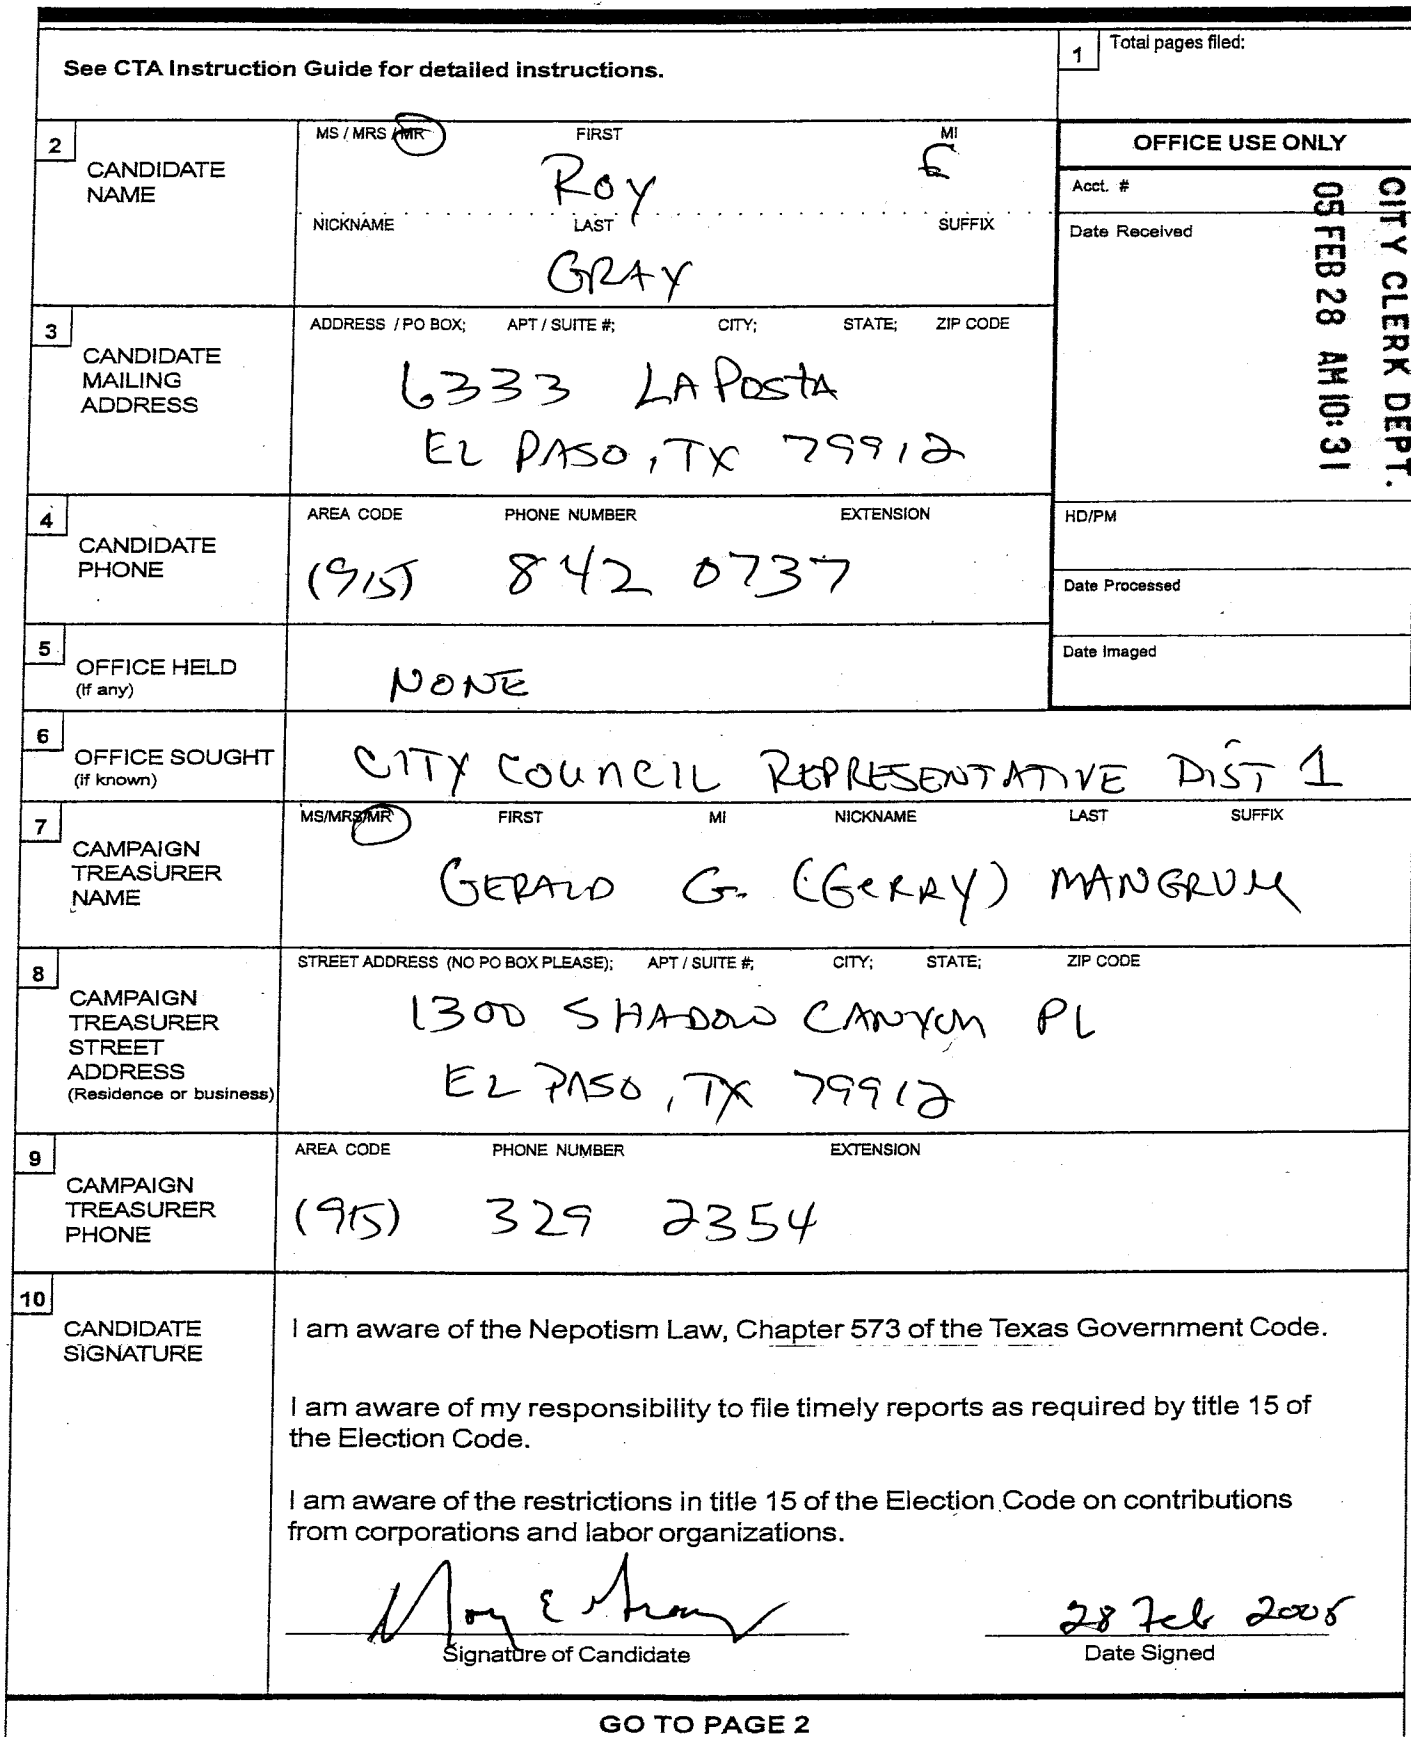 See CTA Instruction Guide for detailed instructions.
1 Total pages filed:
2 CANDIDATE NAME
MS / MRS / MR FIRST MI
Roy E
NICKNAME LAST SUFFIX
GRAY
OFFICE USE ONLY
Acct. #
Date Received
CITY CLERK DEPT.
05 FEB 28 AM 10:31
3 CANDIDATE MAILING ADDRESS
ADDRESS / PO BOX; APT / SUITE #; CITY; STATE; ZIP CODE
6333 LA POSTA
EL PASO, TX 79912
4 CANDIDATE PHONE
AREA CODE PHONE NUMBER EXTENSION
(915) 842 0737
HD/PM
Date Processed
Date Imaged
5 OFFICE HELD (if any)
NONE
6 OFFICE SOUGHT (if known)
CITY COUNCIL REPRESENTATIVE DIST 1
7 CAMPAIGN TREASURER NAME
MS/MRS/MR FIRST MI NICKNAME LAST SUFFIX
GERALD G. (GERRY) MANGRUM
8 CAMPAIGN TREASURER STREET ADDRESS (Residence or business)
STREET ADDRESS (NO PO BOX PLEASE); APT / SUITE #; CITY; STATE; ZIP CODE
1300 SHADOW CANYON PL
EL PASO, TX 79912
9 CAMPAIGN TREASURER PHONE
AREA CODE PHONE NUMBER EXTENSION
(915) 329 2354
10 CANDIDATE SIGNATURE
I am aware of the Nepotism Law, Chapter 573 of the Texas Government Code.
I am aware of my responsibility to file timely reports as required by title 15 of
the Election Code.
I am aware of the restrictions in title 15 of the Election Code on contributions
from corporations and labor organizations.
Roy E Gray 28 Feb 2005
Signature of Candidate Date Signed
GO TO PAGE 2